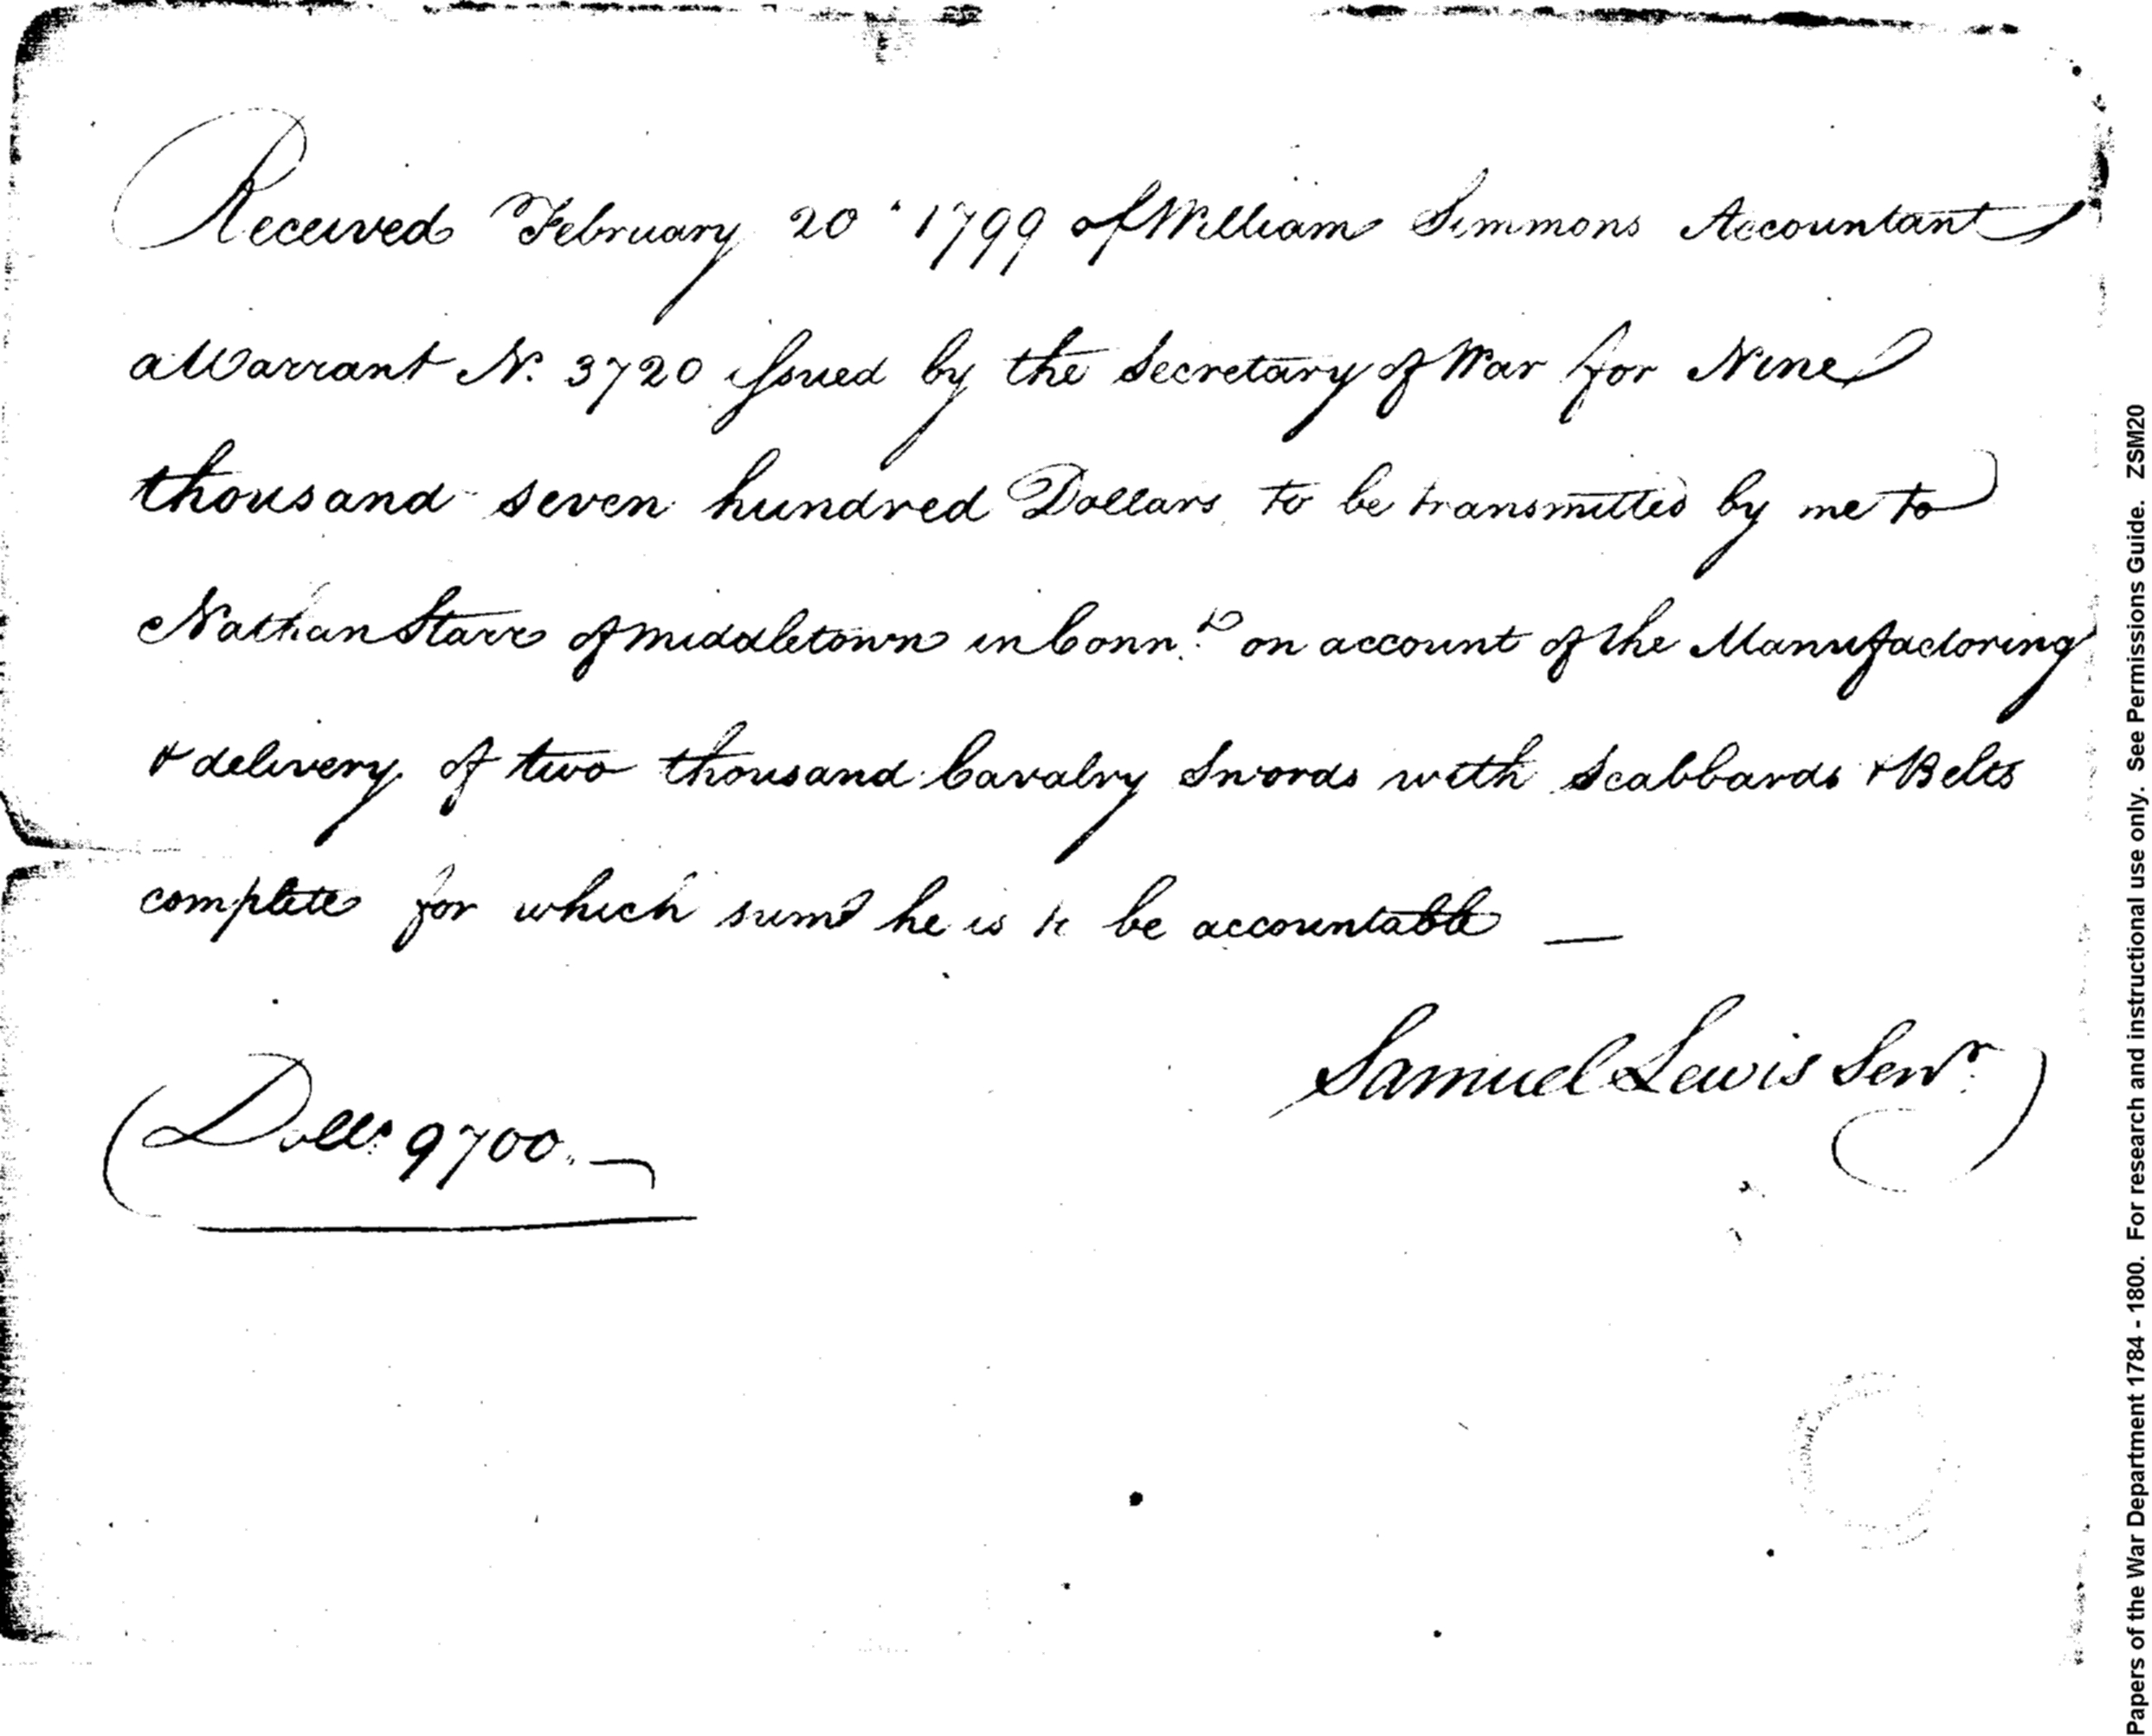 Received February 20 1799 of William Simmons Accountant
a Warrant N. 3720 issued by the Secretary of War for Nine
thousand seven hundred Dollars to be transmitted by me to
Nathan Starr of Middletown in Conn. on account of the Manufactoring
& delivery of two thousand Cavalry Swords with Scabbards & Belts
complete for which sum he is to be accountable —
Samuel Lewis Senr.
Dolls. 9700. —
Papers of the War Department 1784 - 1800. For research and instructional use only. See Permissions Guide. ZSM20